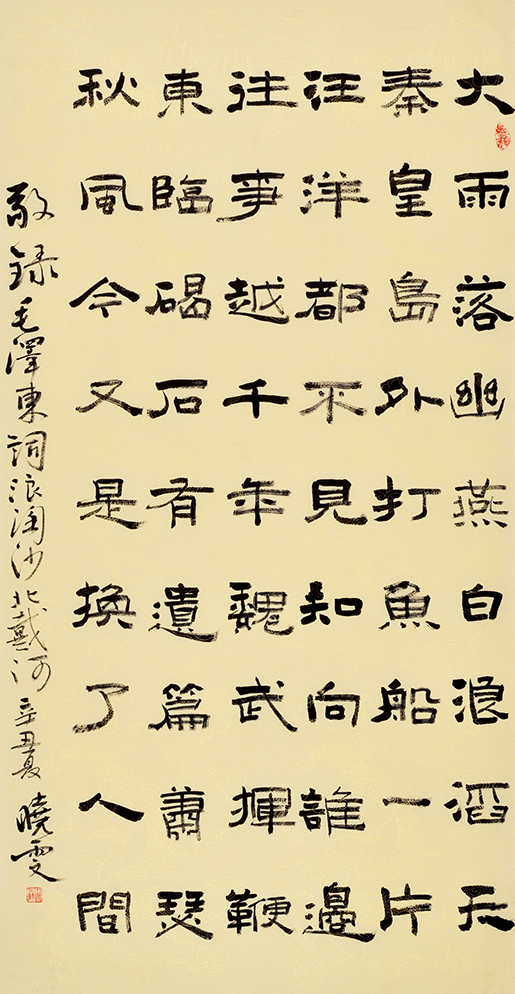 大雨落幽燕白浪滔天
秦皇島外打魚船一片
汪洋都不見知向誰邊
往事越千年魏武揮鞭
東臨碣石有遺篇蕭瑟
秋風今又是換了人間
敬録毛澤東詞浪淘沙北戴河辛丑夏曉雯